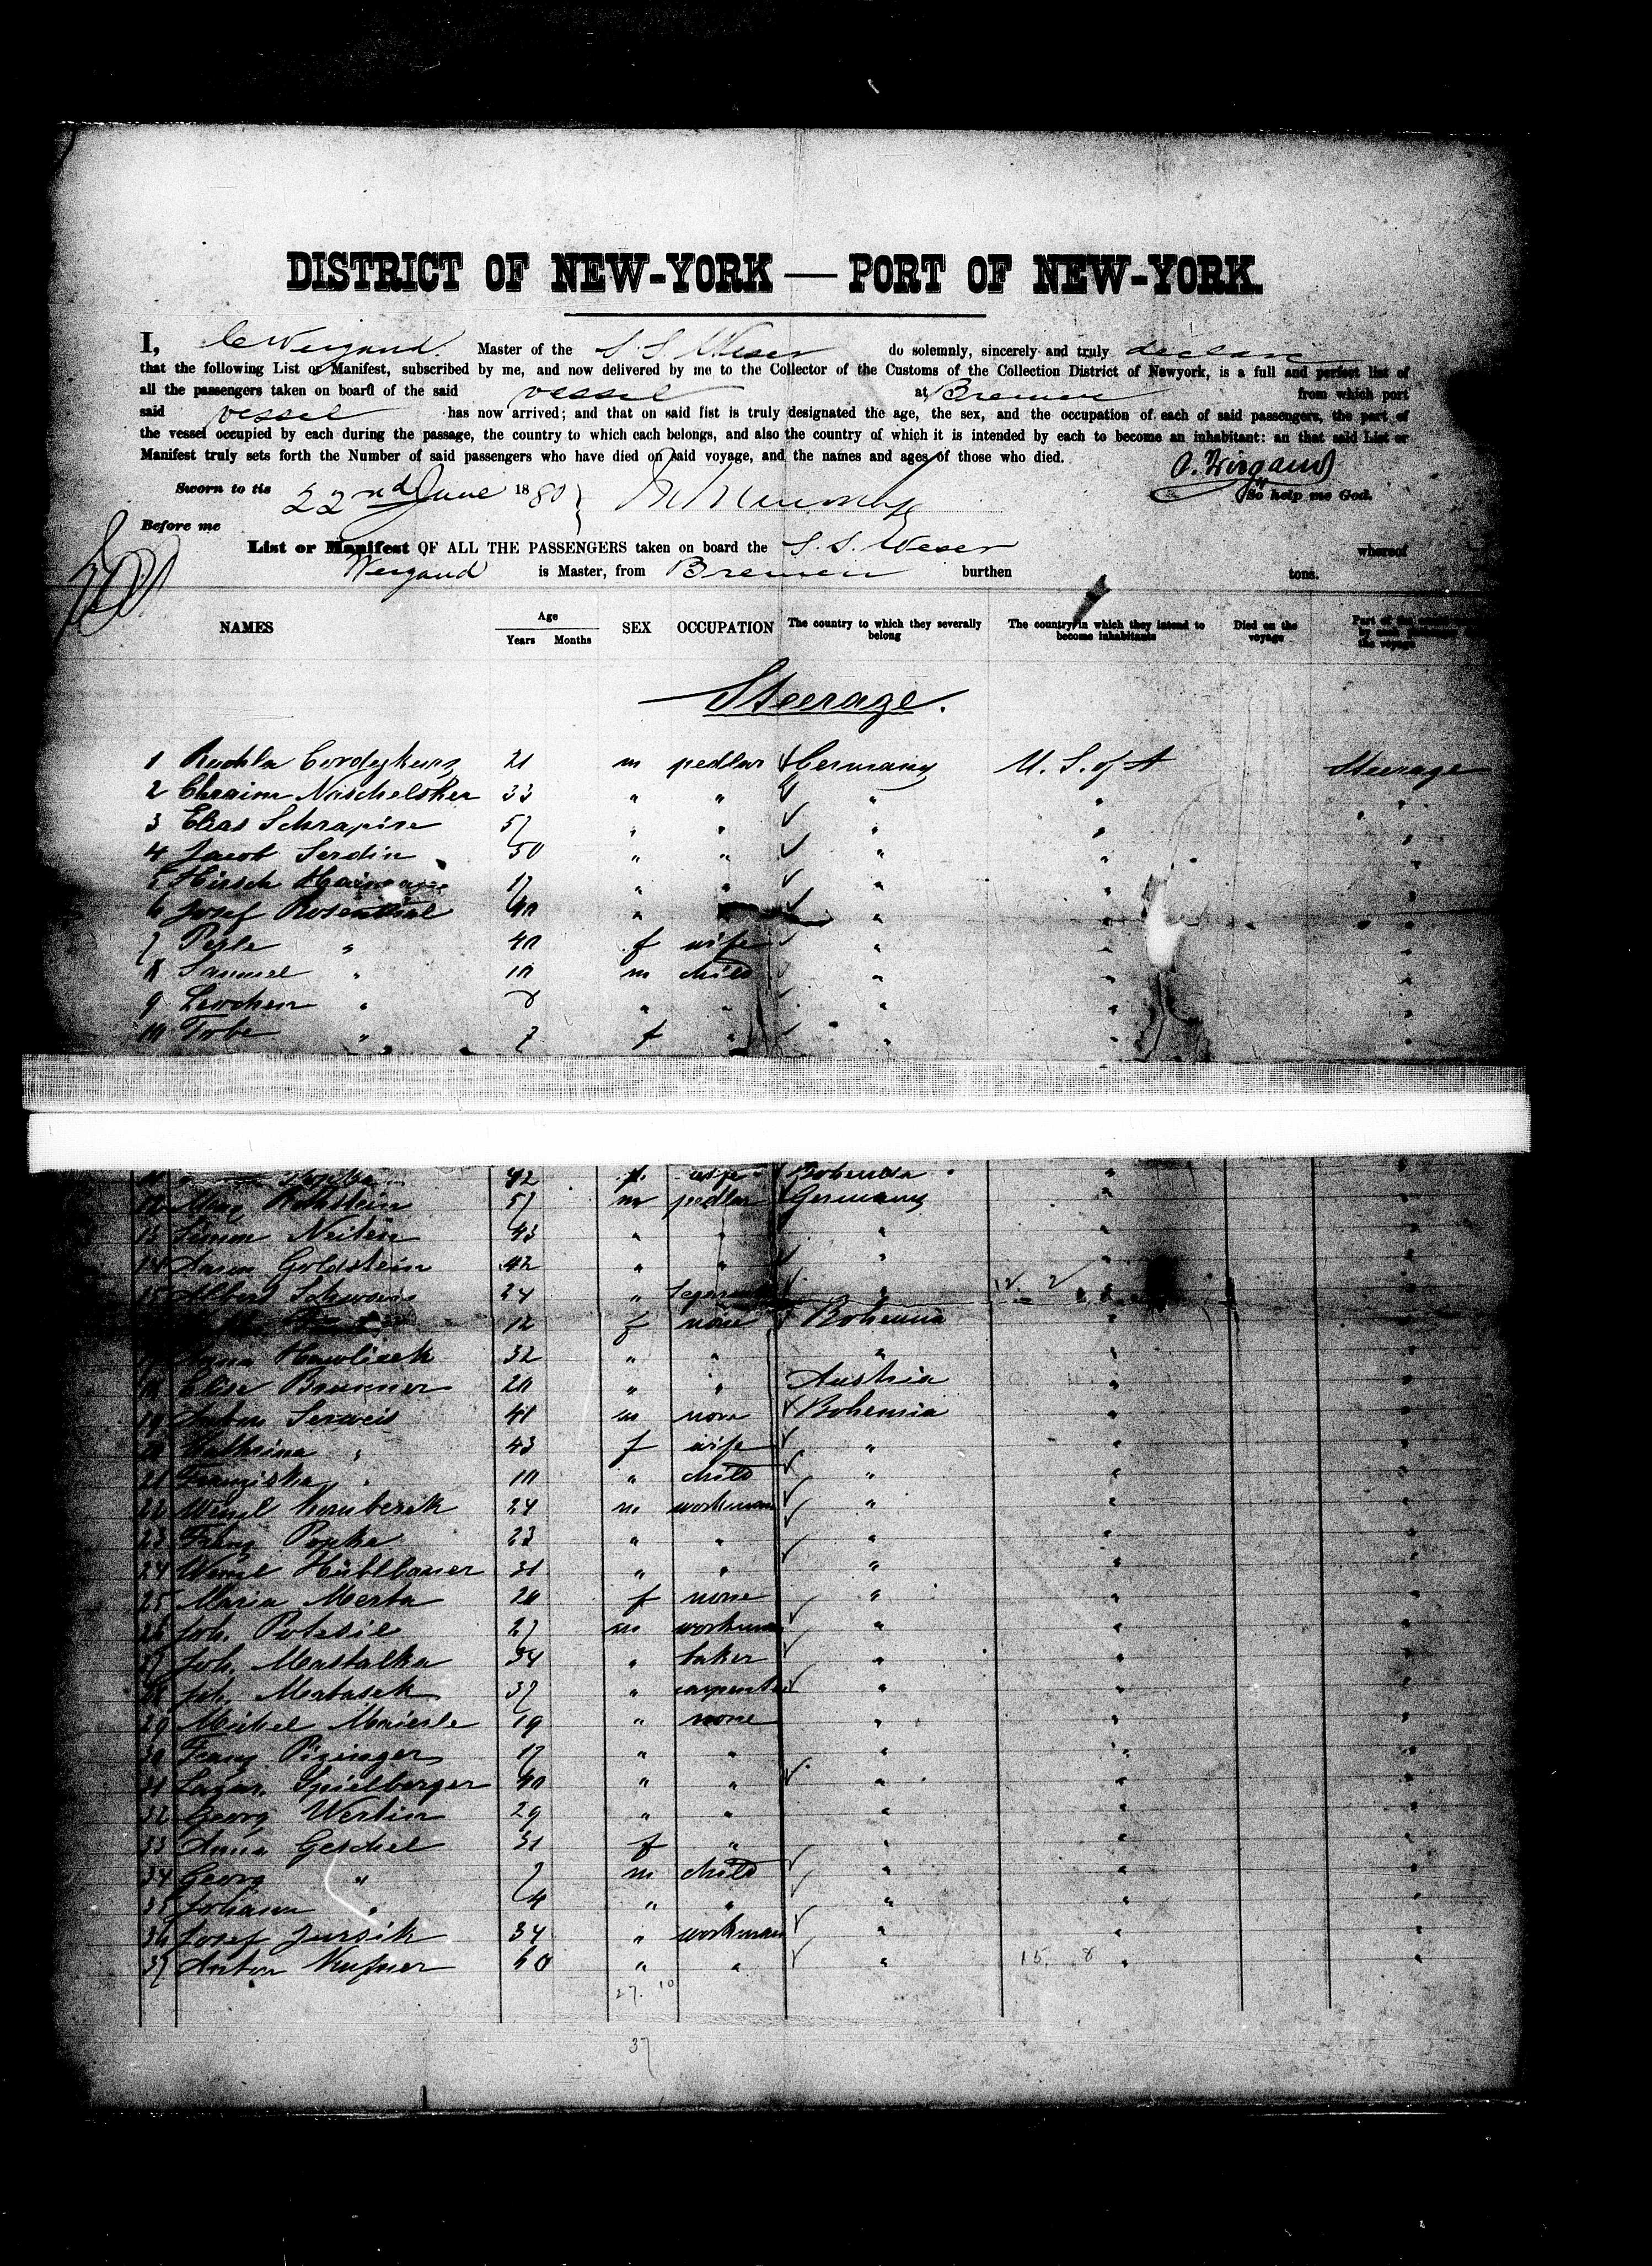 DISTRICT OF NEW-YORK — PORT OF NEW-YORK.
I, C Weigand. Master of the S. S. Weser do solemnly, sincerely and truly declare
that the following List or Manifest, subscribed by me, and now delivered by me to the Collector of the Customs of the Collection District of Newyork, is a full and perfect list of
all the passengers taken on board of the said vessel at Bremen from which port
said vessel has now arrived; and that on said list is truly designated the age, the sex, and the occupation of each of said passengers, the part of
the vessel occupied by each during the passage, the country to which each belongs, and also the country of which it is intended by each to become an inhabitant: an that said List or
Manifest truly sets forth the Number of said passengers who have died on said voyage, and the names and ages of those who died.
Sworn to tis 22nd June 1880 C. Wiegand So help me God.
Before me
List or Manifest OF ALL THE PASSENGERS taken on board the S. S. Weser whereof
Weigand is Master, from Bremen burthen tons.
NAMES Age Years Months SEX OCCUPATION The country to which they severally belong The country in which they intend to become inhabitants Died on the voyage Part of the the voyage
Steerage.
1 Ruchla 21 m pedlar Germany U. S. of A Steerage
2 Chraim 33 " " " " "
3 Elias Schrapire 57 " " " " "
4 Jacob Serdin 50 " " " " "
5 Hirsch 17 " " " " "
6 Josef Rosenthal 40 " " " " "
7 Perle " 40 f wife " " "
8 Samuel " 10 m child " " "
9 Leochen " 8 " " " " "
10 Tobe " 7 f " " " "
11 " 42 f wife Bohemia " "
12 Rothstein 57 m pedlar Germany " "
13 Simon 43 " " " " "
14 Aaron Goldstein 42 " " " " "
15 Albert 24 " " " "
12 f none Bohemia " "
Anna Hawlicek 32 " " " " "
18 Elise Brunner 20 " " Austria " "
19 Anton Serweis 41 m none Bohemia " "
20 Kathrina " 43 f wife " " "
21 Franziska " 10 " child " " "
22 Wenzl 24 m workman " " "
23 Franz Popke 23 " " " " "
24 Wenzl Hüblbauer 31 " " " " "
25 Maria Merta 20 f none " " "
26 Joh. Potesil 27 m workman " " "
27 Joh. Mastalka 34 " baker " " "
28 Joh. Matasek 37 " carpenter " " "
29 Michel Maierle 19 " none " " "
30 Franz Pizinger 17 " " " " "
31 Lazar. Spielberger 40 " " " " "
32 Georg Wertin 29 " " " " "
33 Anna Geschel 31 f " " " "
34 Georg " 7 m child " " "
35 Johann " 4 " " " " "
36 Josef Jursik 34 " workman " " "
37 Anton Kufner 60 " " " 15. 8 " "
27. 10
37